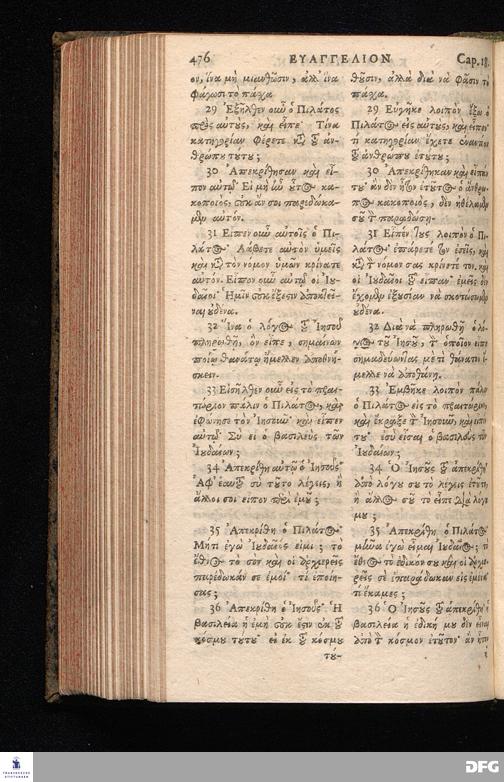 476 ΕΥΑΓΓΕΛΙΟΝ Cap. 18.
ον, ἵνα μὴ μιανθῶσιν, ἀλλ' ἵνα
φάγωσι το πάχα
29 Ἐξῆλθεν οὖν ὁ Πιλάτος
πρὸς αὐτȣς, καὶ εἶπε· Τίνα
κατηγορίαν φέρετε κỳ τ͂ ἀν-
θρωπȣ τȣτȣ;
30 Ἀπεκρίθησαν καὶ εἶ-
πον αὐτῷ· Εἰ μὴ ἦν ȣτος κα-
κοποιὸς, οὐκ άν σοι παρεδώκα-
μεν αὐτόν.
31 Ειπεν οὖν αὐτοῖς ὁ Πι-
λάτος· Λάβετε αὐτὸν ὑμεῖς
καὶ κỳ τὸν νόμον ὑμῶν κρίνατε
αὐτόν. Εἶπον οὖν αὐτῷ οἱ Ἰȣ-
δαῖοι· Ἡμῖν οὐκ ἔξεςιν ἀποκτεῖ-
ναι ȣδένα.
32 Ἵνα ὁ λόγος τ͂ Ἰησοῦ
πληρωθῇ, ὃν εἶπε, σημαίνων
ποίῳ θανάτῳ ἤμελλεν ἀποθνή-
σκειν.
33 Εἰσῆλθεν οὖν εἰς τὸ πραι-
τώριον πάλιν ὁ Πιλάτος, καὶ
ἐφώνησε τον Ἰησοῦν· καὶ εἶπεν
αὐτῷ· Συ εἶ ὁ βασιλεὺς τῶν
Ἰȣδαίων;
34 Απεκρίθη αὐτῷ ὁ Ἰησοῦς·
Ἀφ' ἑαυτ͂ σὺ τȣτο λέγεις, ἢ
ἄλλοι σοι εἶπον περὶ ἐμȣ;
35 Ἀπεκρίθη ὁ Πιλάτος·
Μήτι ἐγὼ Ἰȣδαῖός εἰμι; τὸ
ἔθνος το σον καὶ οἱ ἀρχιερεῖς
παρέδωκάν σε ἐμοί· τί ἐποίη-
σας;
36 Ἀπεκρίθη ὁ Ἰησοῦς· Ἡ
βασιλεία ἡ ἐμὴ οὐκ ἔςιν ἐκ τ͂
κόσμȣ τȣτȣ· εἰ ἐκ τ͂ κόσμȣ
τȣ-
θȣσιν, ἀλλὰ διὰ νὰ φᾶσιν τὸ
πάχα.
29 Εὐγῆκε λοιπὸν ἔξω ὁ
Πιλάτος εἰς αὐτȣς, καὶ εἶπεν·
τί κατηγορίαν ἔχετε ἐναντίον
τ͂ ἀνθρώπȣ ἐτȣτȣ;
30 Ἀπεκρίθηκαν καὶ εἶπαν
τȣ· ἂν δὲν ἦτον ἐτȣτος ὁ ἄνθρω-
πος κακοποιὸς, δὲν ἠθέλαμεν
σȣ τ̀ παραδώση.
31 Εἶπέν τȣς λοιπὸν ὁ Πι-
λάτος· ἐπάρετέ τον ἐσεῖς, καὶ
κỳ τ̀ νόμον σας κρίνετέ τον, καὶ
οἱ Ἰȣδαῖοι τ͂ εἶπαν· ἐμεῖς δὲν
ἔχομεν ἐξȣσίαν νὰ σκοτώσωμεν
ȣδένα.
32 Διὰ νὰ πληρωθῇ ὁ λό-
γος τȣ Ἰησȣ, τ̀ ὁποῖον εἶπε
σημαδεύωντας με τί θάνατον ἤ-
μελλε νὰ ἀποθάνῃ.
33 Ἐμβῆκε λοιπὸν πάλιν
ὁ Πιλάτος εἰς τὸ πραιτώριον,
καὶ ἔκραξε τ̀ Ἰησοῦν, καὶ εἶπέ
τȣ· ἐσὺ εἶσαι ὁ βασιλεὺς τῶν
Ἰȣδαίων;
34 Ὁ Ἰησȣς τ͂ ἀπεκρίθη·
ἀπὸ λόγȣ σȣ τὸ λέγεις ἐτȣτη
ἢ ἄλλος σȣ τὸ εἶπε διὰ λόγȣ
μȣ;
35 Ἀπεκρίθη ὁ Πιλάτος·
μήνα ἐγὼ εἶμαι Ἰȣδαῖος; τὸ
ἔθνος τὸ ἐδικόν σȣ καὶ οἱ ἀρχιε-
ρεῖς σὲ ἐπαραδωκαν εἰς ἐμένα·
τί ἔκαμες;
36 Ὁ Ἰησȣς τ͂ ἀπεκρίθη· ἡ
βασιλεία ἡ ἐδική μȣ δὲν εἶναι
ἀπὸ τ̀ κόσμον ἐτȣτον· ἂν ἦτον
FRANCKESCHE
STIFTUNGEN
DFG